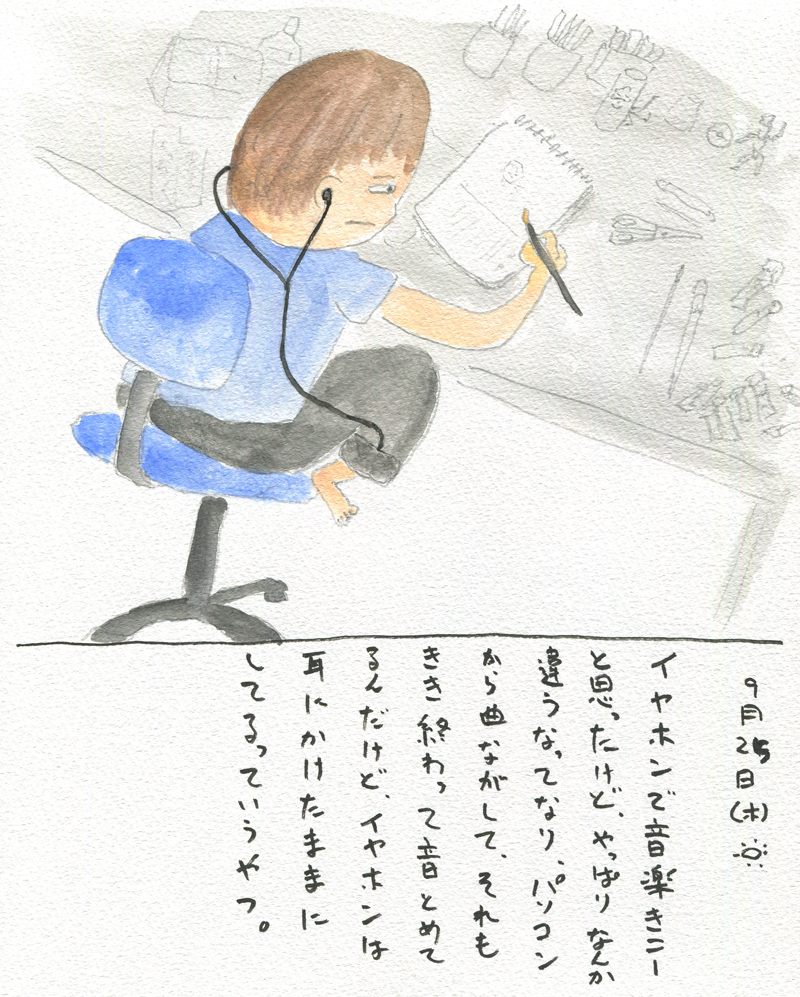 9月25日(木)
イヤホンで音楽きこー
と思ったけど、やっぱりなんか
違うなってなり、パソコン
から曲ながして、それも
きき終わって音とめて
るんだけど、イヤホンは
耳にかけたままに
してるっていうやつ。